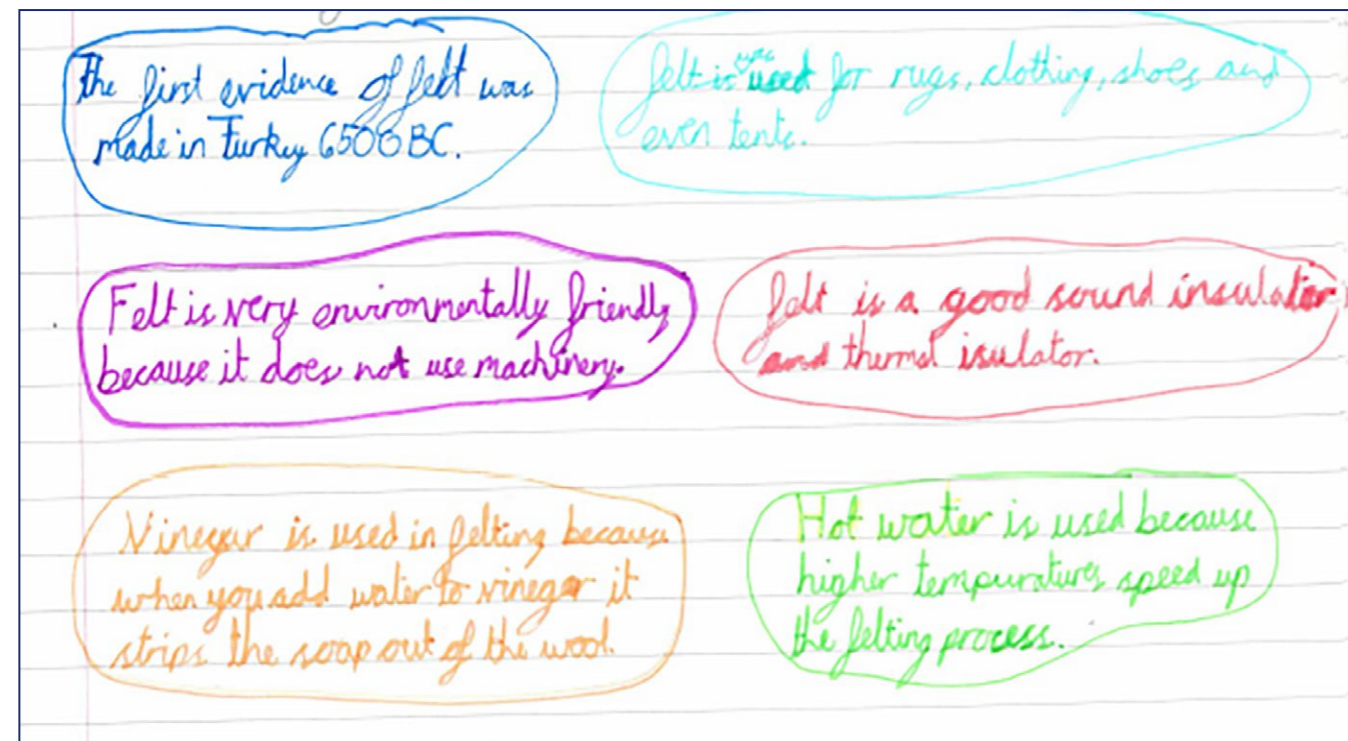 The first evidence of felt was
made in Turkey 6500 BC.
felt is was used for rugs, clothing, shoes and
even tents.
Felt is very environmentally friendly
because it does not use machinery.
felt is a good sound insulator
and thermal isulator.
Vinegar is used in felting because
when you add water to vinegar it
strips the soap out of the wool.
Hot water is used because
higher tempuratures speed up
the felting process.